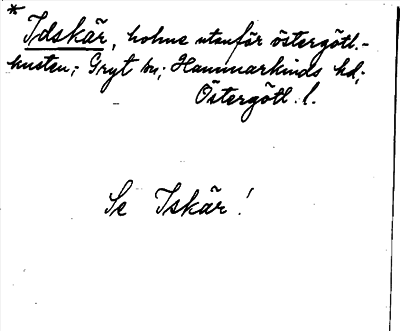 * Idskär, holme utanför östergötl.-
kusten; Gryt sn; Hammarkinds hd;
Östergötl. l.
Se Iskär!